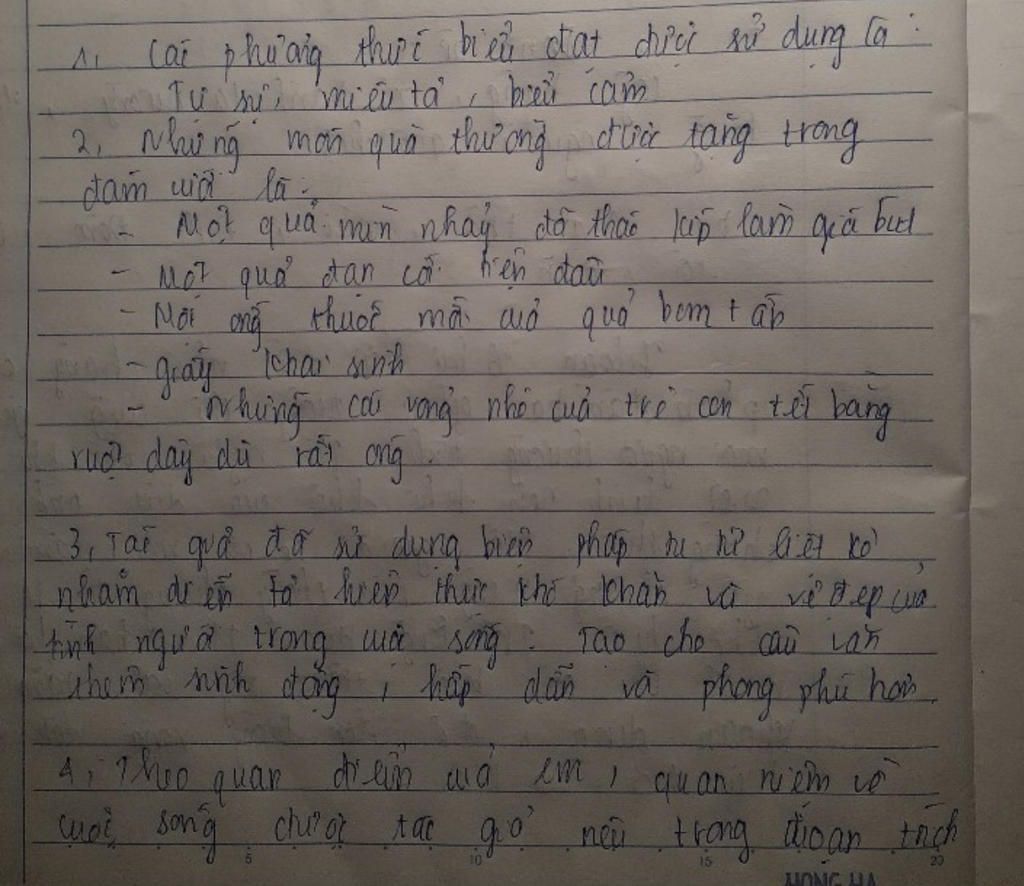 1, Các phương thức biểu đạt được sử dụng là :
Tự sự, miêu tả, biểu cảm
2, Những món quà thường được tặng trong
đám cưới là :
- Một quả mìn nhảy đã tháo kíp làm giá bút
- Một quả đạn cối tiện đầu
- Một ống thuốc mồi của quả bom tấn
- giấy khai sinh
- Những cái vòng nhỏ của trẻ con tết bằng
ruột dây dù rất óng.
3, Tác giả đã sử dụng biện pháp tu từ liệt kê
nhằm diễn tả hiện thực khó khăn và vẻ đẹp của
tình người trong cuộc sống. Tạo cho câu văn
thêm sinh động, hấp dẫn và phong phú hơn.
4, Theo quan điểm của em, quan niệm về
cuộc sống được tác giả nêu trong đoạn trích
5 10 15 20
HONG HA